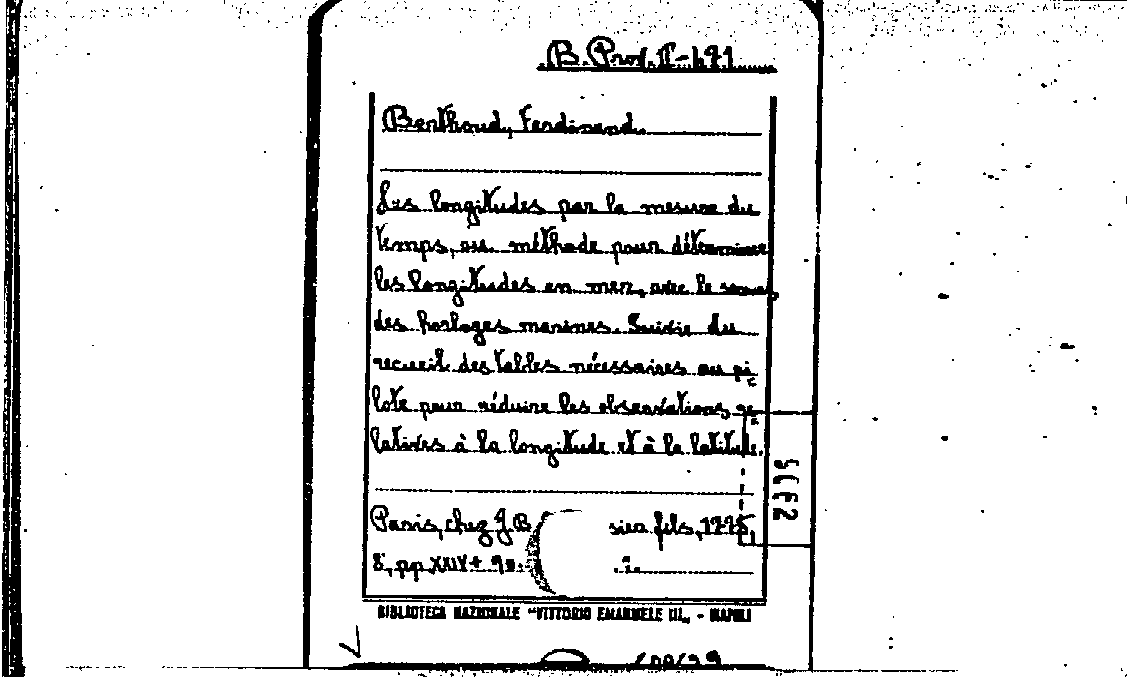 B. Prov. II-491
Berthoud, Ferdinand.
Les longitudes par la mesure du
temps, ou méthode pour déterminer
les longitudes en mer, avec le secours
des horloges marines. Suivie du
recueil des tables nécessaires au pi
lote pour réduire les observations re
latives à la longitude et à la latitude.
Paris, chez J.B sier fils, 1775,
8°, pp. XXIV +
BIBLIOTECA NAZIONALE "VITTORIO EMANUELE III„ - NAPOLI